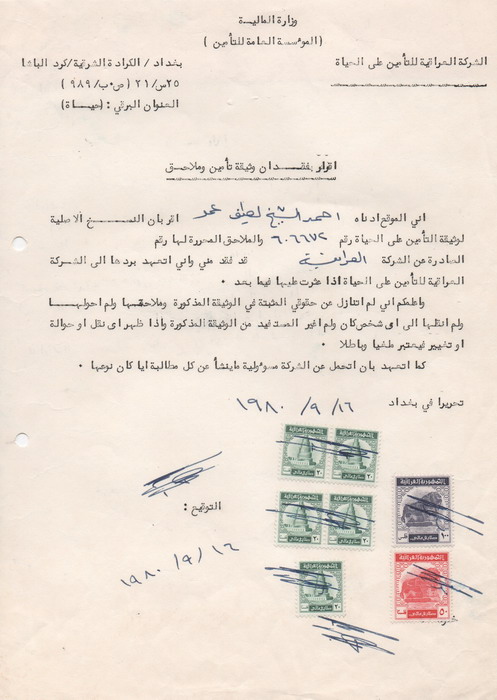 وزارة المالية
(المؤسسة العامة للتأمين)
الشركة العراقية للتأمين على الحياة
بغداد / الكرادة الشرقية/ كرد الباشا
٢٥س/٢١ (ص٠ب/ ٩٨٩)
العنوان البرقي : (حياة)
اقرار بفقدان وثيقة تأمين وملاحق
اني الموقع ادناه احمد الشيخ لطيف محمد اقر بان النسخ الاصلية
لوثيقة التأمين على الحياة رقم ٦٠٦٦٧٢ والملاحق المحررة لها رقم
الصادرة عن الشركة العراقية قد فقد مني واني اتعهد بردها الى الشركة
العراقية للتأمين على الحياة اذا عثرت عليها فيما بعد ٠
واعلمكم اني لم اتنازل عن حقوقي المثبتة في الوثيقة المذكورة وملاحقها ولم احولها
ولم انقلها الى اى شخص كان ولم اغير المستفيد من الوثيقة المذكورة واذا ظهر اى نقل او حوالة
او تغيير فيعتبر ملغيا وباطلا ٠
كما اتعهد بان اتحمل عن الشركة مسوؤلية ماينشأ عن كل مطالبة ايا كان نوعها ٠
تحريرا في بغداد ١٦ / ٩ / ١٩٨٠
التوقيع :
١٦ / ٩ / ١٩٨٠
الجمهورية العراقية
٢٠
٢٠
٢٠
٢٠
٢٠
الجمهورية العراقية
١٠٠
الجمهورية العراقية
٥٠